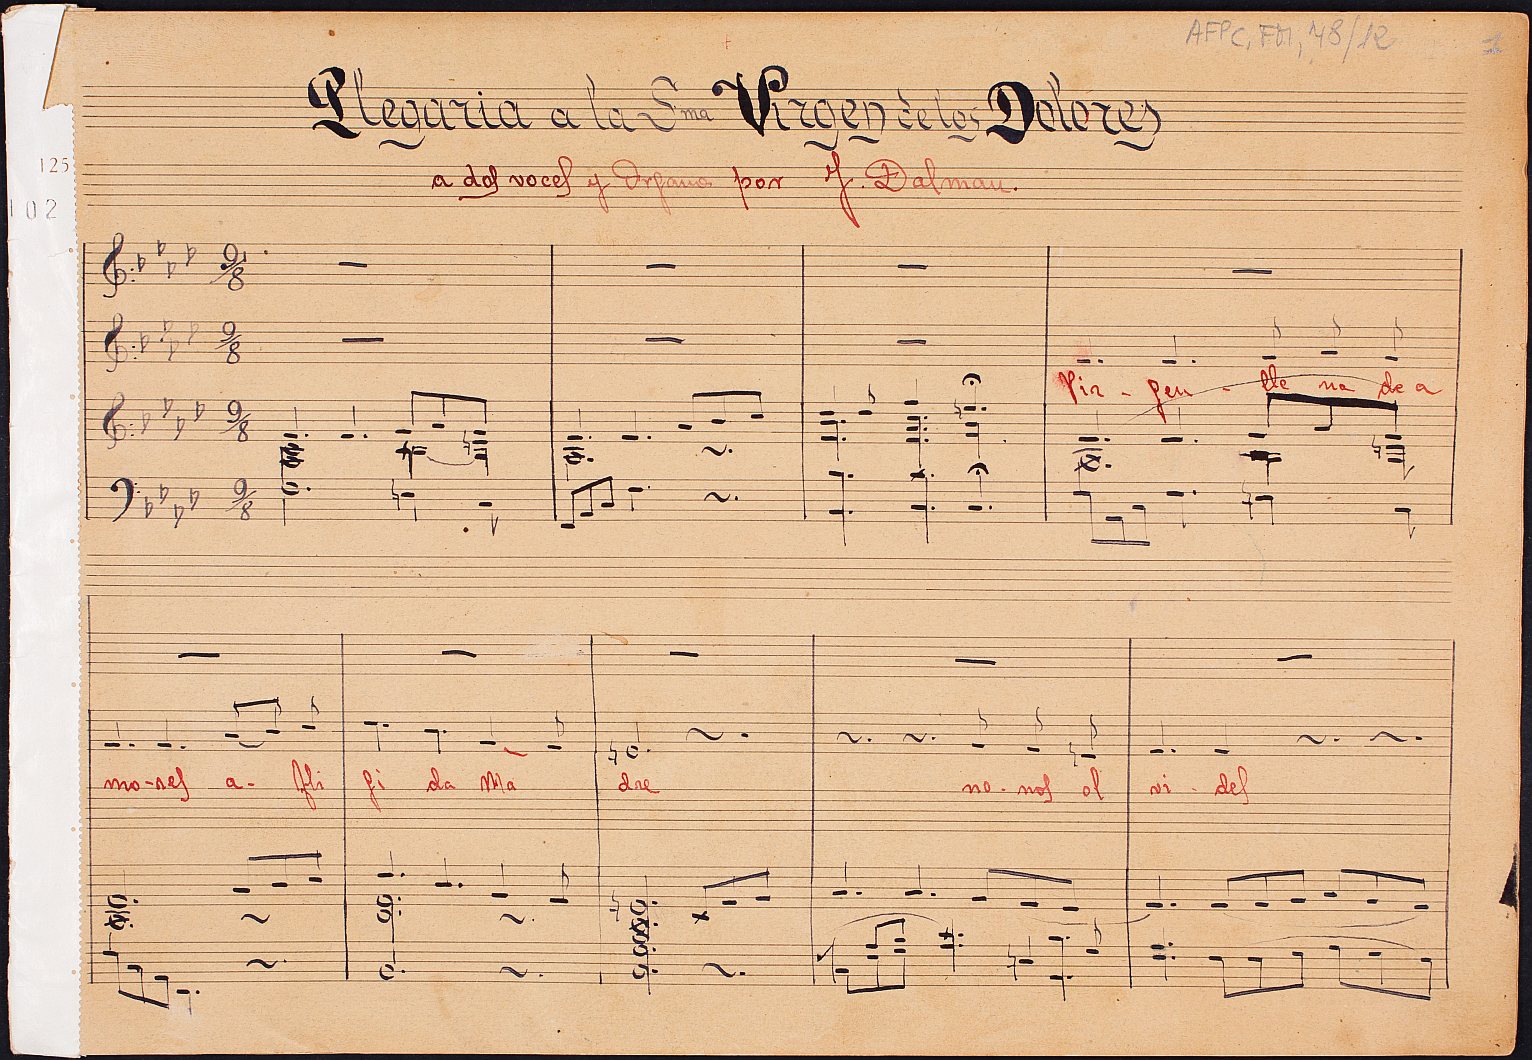 AFPC, FM, 48/12
1
Plegaria a la Sma Virgen de los Dolores
125
a dos voces y Organo por J. Dalmau.
102
9/8
9/8
Vir - gen - lle na de a
9/8
9/8
mo-res a - fli gi da Ma dre no - nos ol vi - des